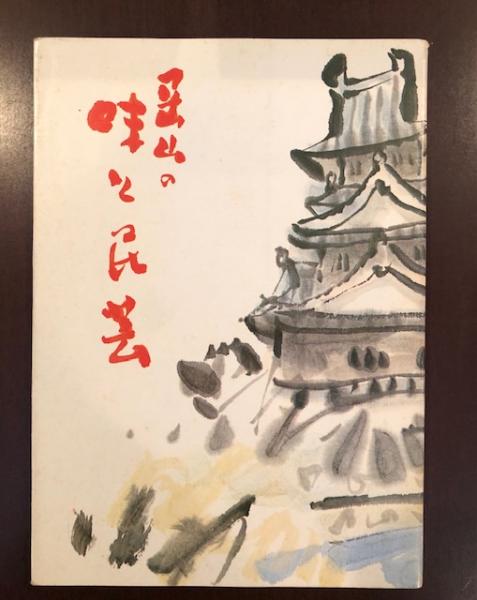 岡山の
味と民芸